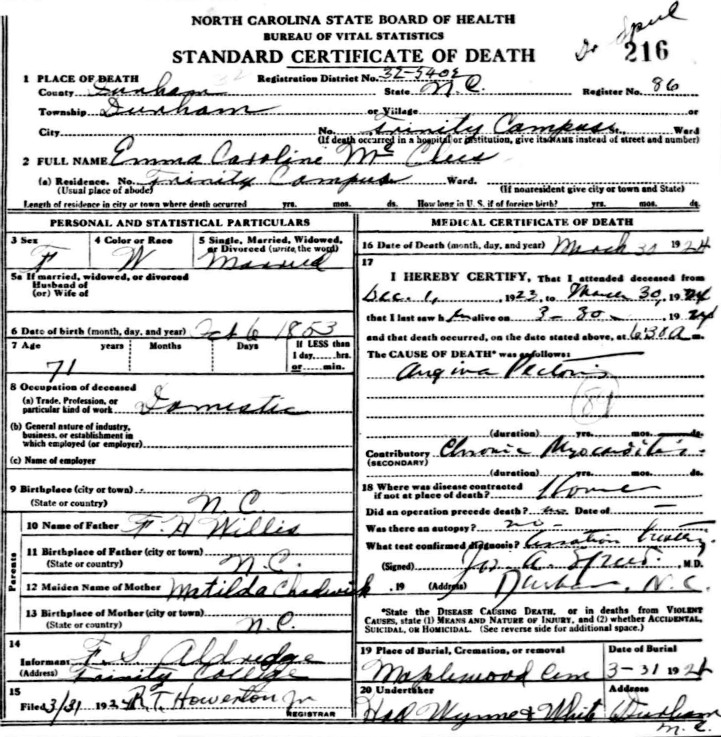 NORTH CAROLINA STATE BOARD OF HEALTH
BUREAU OF VITAL STATISTICS
STANDARD CERTIFICATE OF DEATH
216
1 PLACE OF DEATH Registration District No. 32-5408
County Durham State N.C. Register No. 86
Township Durham or Village or
City No. Trinity Campus St., Ward
(If death occurred in a hospital or institution, give its NAME instead of street and number)
2 FULL NAME Emma Caroline Mc
(a) Residence. No. Trinity Campus Ward.
(Usual place of abode) (If nonresident give city or town and State)
Length of residence in city or town where death occurred yrs. mos. ds. How long in U. S. if of foreign birth? yrs. mos. ds.
PERSONAL AND STATISTICAL PARTICULARS
3 Sex 4 Color or Race 5 Single, Married, Widowed, or Divorced (write the word)
F W Married
5a If married, widowed, or divorced
Husband of
(or) Wife of
6 Date of birth (month, day, and year) Oct 6 1853
7 Age years Months Days If LESS than 1 day, hrs. or min.
71
8 Occupation of deceased
(a) Trade, Profession, or particular kind of work Domestic
(b) General nature of industry, business, or establishment in which employed (or employer)
(c) Name of employer
9 Birthplace (city or town)
(State or country) N.C.
Parents
10 Name of Father F. H Willis
11 Birthplace of Father (city or town)
(State or country) N.C.
12 Maiden Name of Mother Matilda Chadwick
13 Birthplace of Mother (city or town)
(State or country) N.C.
14
Informant F. S. Aldridge
(Address) Trinity College
15
Filed 3/31 1924 R.T. Howerton Jr
REGISTRAR
MEDICAL CERTIFICATE OF DEATH
16 Date of Death (month, day, and year) March 30 1924
17
I HEREBY CERTIFY, That I attended deceased from
Dec. 1, 1923, to March 30, 1924
that I last saw h alive on 3-30- 1924
and that death occurred, on the date stated above, at 6:30 A m.
The CAUSE OF DEATH* was as follows:
Angina Pectoris
(duration) yrs. mos. ds.
Contributory Chronic Myocarditis
(SECONDARY)
(duration) yrs. mos. ds.
18 Where was disease contracted
if not at place of death? Home
Did an operation precede death? no Date of
Was there an autopsy? no
What test confirmed diagnosis?
(Signed) Jos. A. Speed M.D.
, 19 (Address) Durham, N.C.
*State the DISEASE CAUSING DEATH, or in deaths from VIOLENT
CAUSES, state (1) MEANS AND NATURE OF INJURY, and (2) whether ACCIDENTAL,
SUICIDAL, OR HOMICIDAL. (See reverse side for additional space.)
19 Place of Burial, Cremation, or removal Date of Burial
Maplewood Cem 3-31 1924
20 Undertaker Address
Hall Wynne & White Durham
N.C.